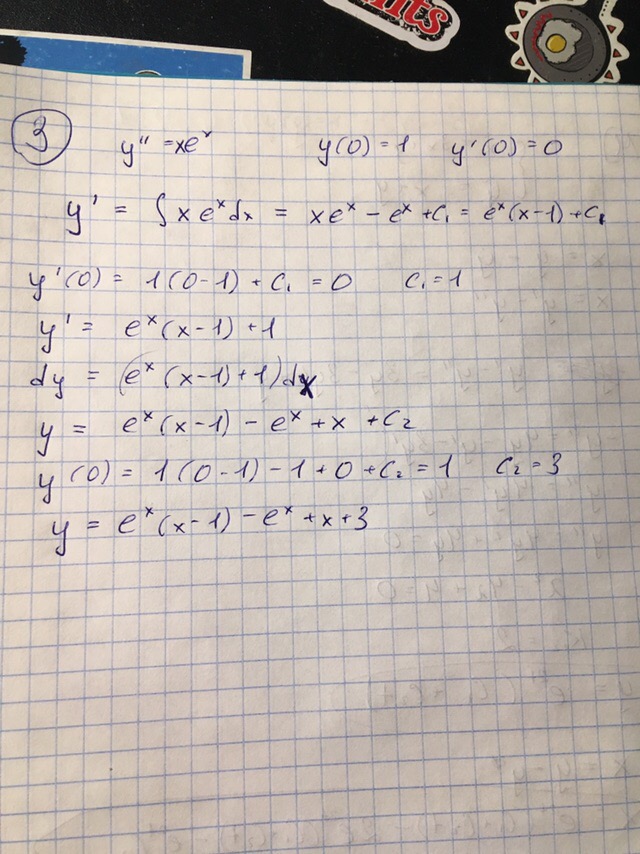 nts
3 y'' = xeˣ y(0) = 1 y'(0) = 0
y' = ∫ x eˣ dx = xeˣ - eˣ + C₁ = eˣ(x-1) + C₁
y'(0) = 1(0-1) + C₁ = 0 C₁ = 1
y' = eˣ(x-1) + 1
dy = (eˣ(x-1)+1)dx
y = eˣ(x-1) - eˣ + x + C₂
y(0) = 1(0-1) - 1 + 0 + C₂ = 1 C₂ = 3
y = eˣ(x-1) - eˣ + x + 3